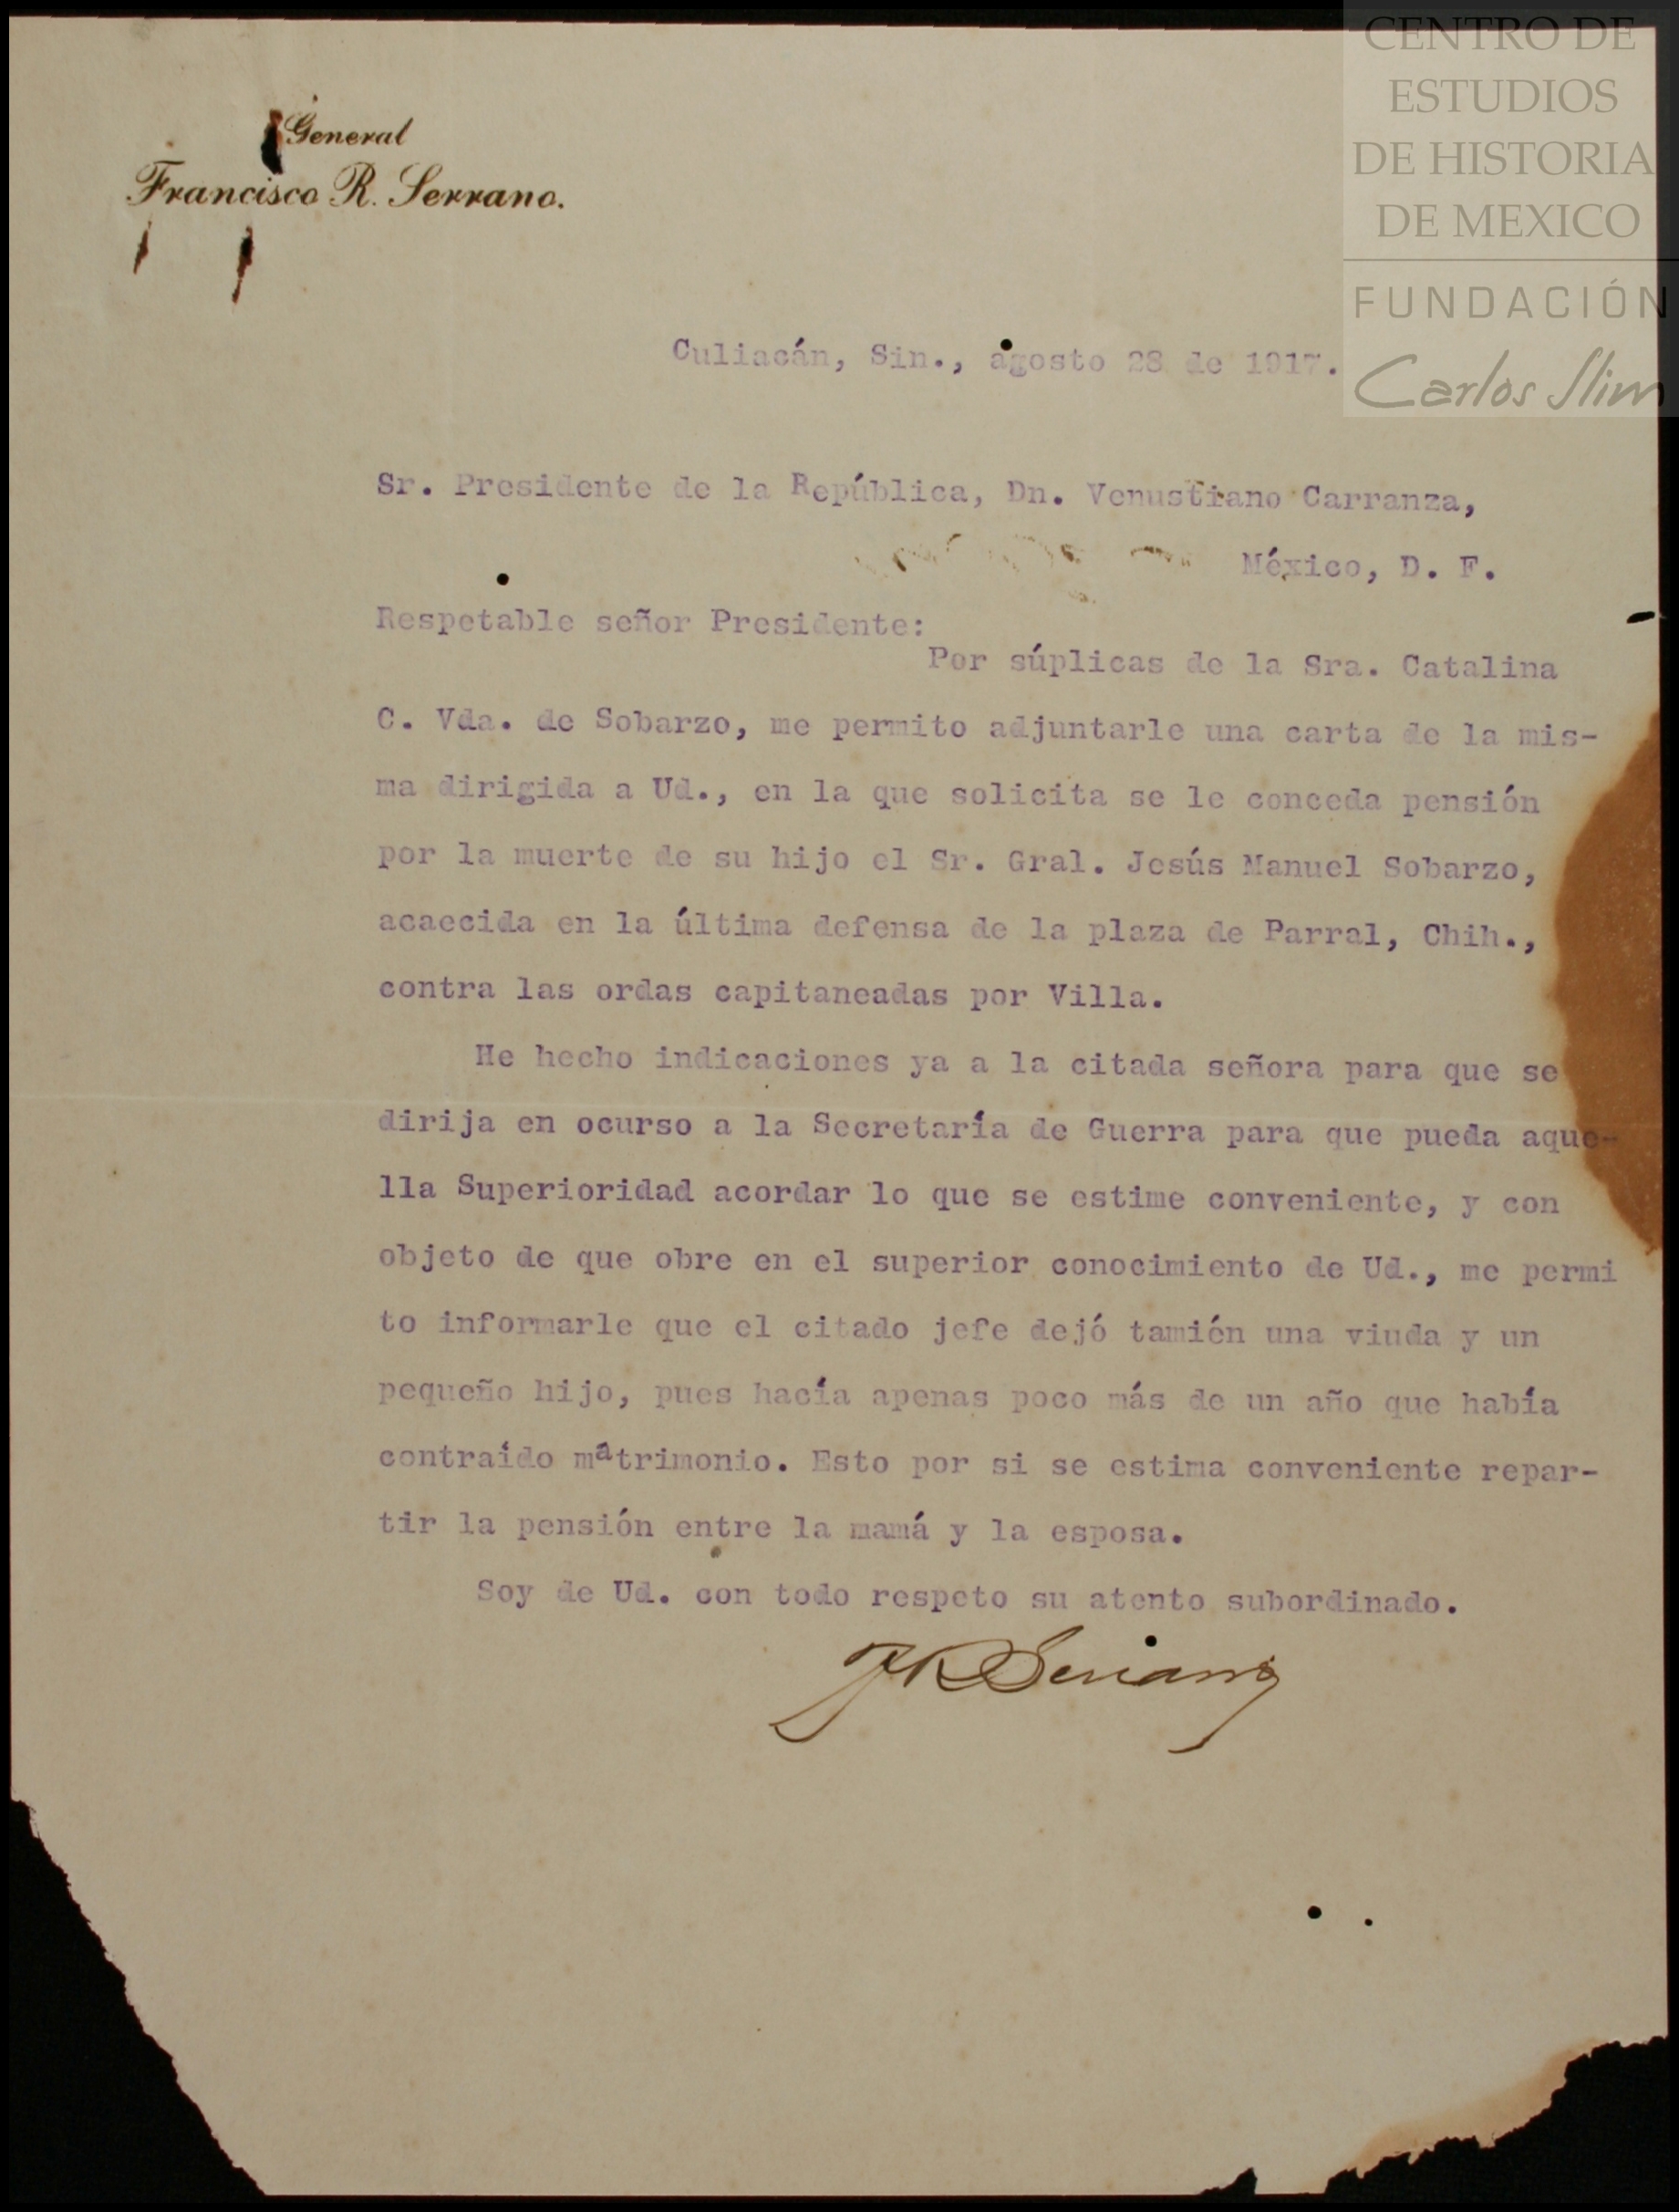 CENTRO DE
ESTUDIOS
DE HISTORIA
DE MEXICO
FUNDACIÓN
Carlos Slim
General
Francisco R. Serrano.
Culiacán, Sin., agosto 28 de 1917.
Sr. Presidente de la República, Dn. Venustiano Carranza,
México, D. F.
Respetable señor Presidente:
Por súplicas de la Sra. Catalina
C. Vda. de Sobarzo, me permito adjuntarle una carta de la mis-
ma dirigida a Ud., en la que solicita se le conceda pensión
por la muerte de su hijo el Sr. Gral. Jesús Manuel Sobarzo,
acaecida en la última defensa de la plaza de Parral, Chih.,
contra las ordas capitaneadas por Villa.
He hecho indicaciones ya a la citada señora para que se
dirija en ocurso a la Secretaría de Guerra para que pueda aque-
lla Superioridad acordar lo que se estime conveniente, y con
objeto de que obre en el superior conocimiento de Ud., me permi
to informarle que el citado jefe dejó tamién una viuda y un
pequeño hijo, pues hacía apenas poco más de un año que había
contraído matrimonio. Esto por si se estima conveniente repar-
tir la pensión entre la mamá y la esposa.
Soy de Ud. con todo respeto su atento subordinado.
FRSerrano